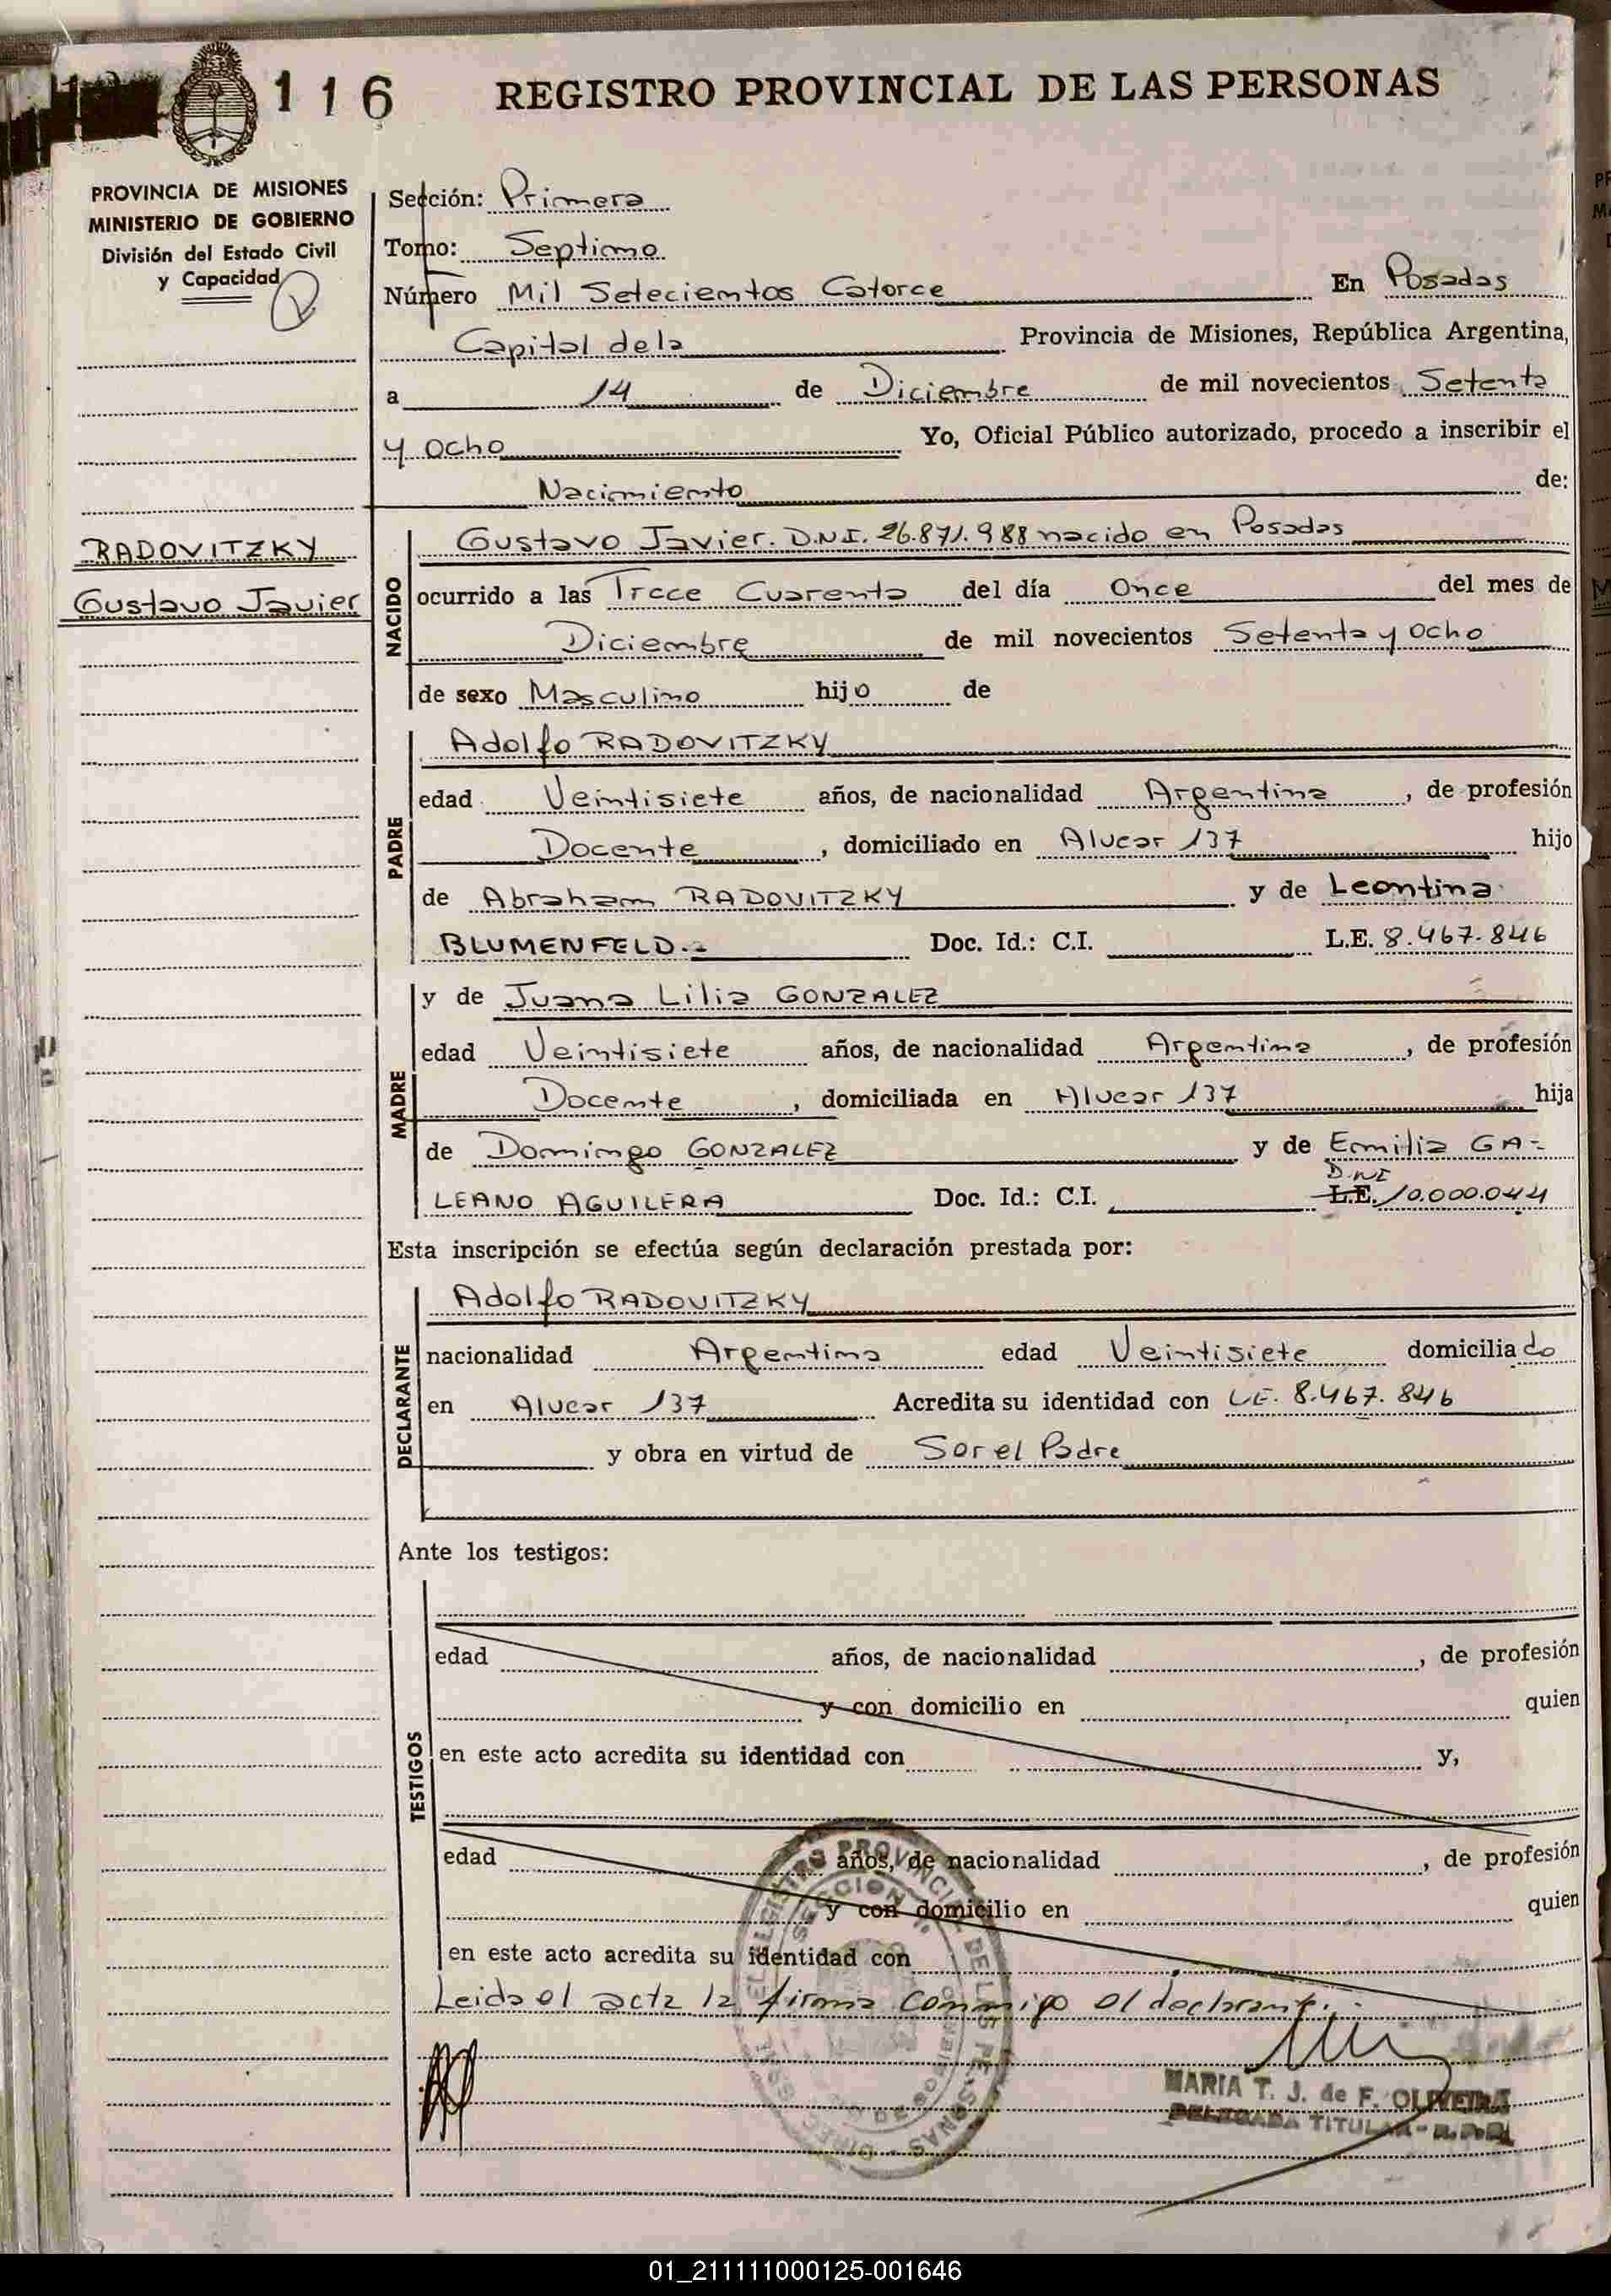 116 REGISTRO PROVINCIAL DE LAS PERSONAS
PROVINCIA DE MISIONES
MINISTERIO DE GOBIERNO
División del Estado Civil
y Capacidad
RADOVITZKY
Gustavo Javier
Sección: Primera
Tomo: Septimo
Número Mil Setecientos Catorce En Posadas
Capital de la Provincia de Misiones, República Argentina,
a 14 de Diciembre de mil novecientos Setenta
y ocho Yo, Oficial Público autorizado, procedo a inscribir el
Nacimiento de:
NACIDO
Gustavo Javier. D.N.I. 26.871.988 nacido en Posadas
ocurrido a las Trece Cuarenta del día Once del mes de
Diciembre de mil novecientos Setenta y ocho
de sexo Masculino hijo de
PADRE
Adolfo RADOVITZKY
edad Veintisiete años, de nacionalidad Argentina, de profesión
Docente, domiciliado en Alvear 137 hijo
de Abraham RADOVITZKY y de Leontina
BLUMENFELD.- Doc. Id.: C.I. L.E. 8.467.846
MADRE
y de Juana Lilia GONZALEZ
edad Veintisiete años, de nacionalidad Argentina, de profesión
Docente, domiciliada en Alvear 137 hija
de Domingo GONZALEZ y de Emilia GA-
D.N.I
LEANO AGUILERA Doc. Id.: C.I. L.E. 10.000.044
Esta inscripción se efectúa según declaración prestada por:
DECLARANTE
Adolfo RADOVITZKY
nacionalidad Argentina edad Veintisiete domiciliado
en Alvear 137 Acredita su identidad con L.E. 8.467.846
y obra en virtud de Ser el Padre
Ante los testigos:
TESTIGOS
edad años, de nacionalidad , de profesión
y con domicilio en quien
en este acto acredita su identidad con y,
edad años, de nacionalidad , de profesión
y con domicilio en quien
en este acto acredita su identidad con
Leida el acta la firma conmigo el declarante.-
REGISTRO PROVINCIAL DE LAS PERSONAS
SECCION
MARIA T. J. de F. OLIVEIRA
DELEGADA TITULAR - R.P.P.
01_211111000125-001646